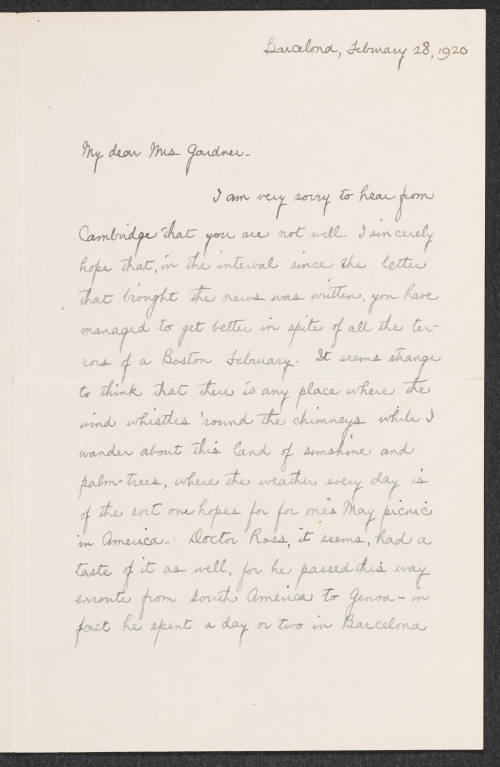 Barcelona, February 28, 1920
My dear Mrs Gardner-
I am very sorry to hear from
Cambridge that you are not well. I sincerely
hope that, in the interval since the letter
that brought the news was written, you have
managed to get better in spite of all the ter-
rors of a Boston February. It seems strange
to think that there is any place where the
wind whistles 'round the chimneys while I
wander about this land of sunshine and
palm-trees, where the weather every day is
of the sort one hopes for for one's May picnic
in America. Doctor Ross, it seems, had a
taste of it as well, for he passed this way
enroute from South America to Genoa - in
fact he spent a day or two in Barcelona